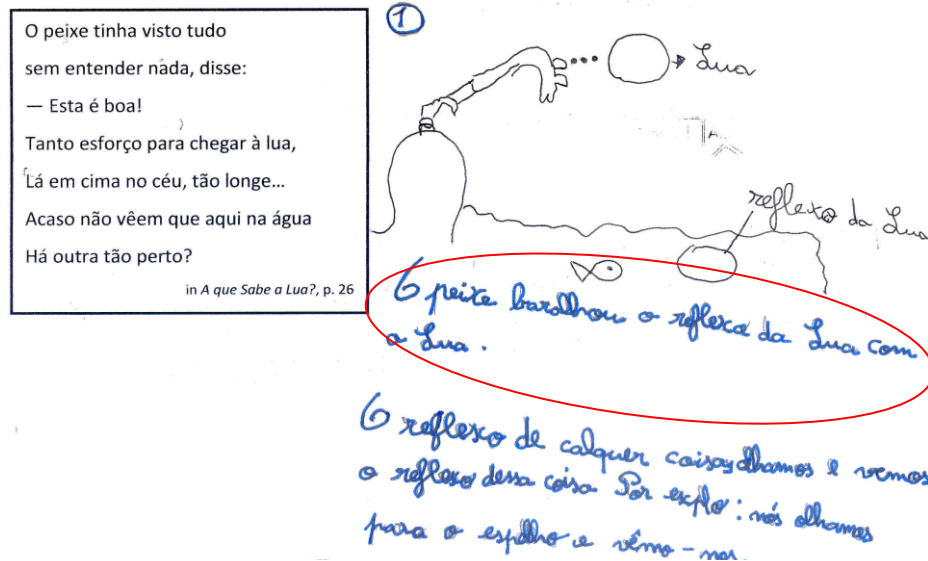 O peixe tinha visto tudo
sem entender nada, disse:
— Esta é boa!
Tanto esforço para chegar à lua,
Lá em cima no céu, tão longe...
Acaso não vêem que aqui na água
Há outra tão perto?
in A que Sabe a Lua?, p. 26
1
Lua
reflexo da Lua
O peixe baralhou o reflexo da Lua com
a Lua.
O reflexo de calquer coisa, olhamos e vemos
o reflexo dessa coisa Por explo: nós olhamos
para o espelho e vêmo-nos